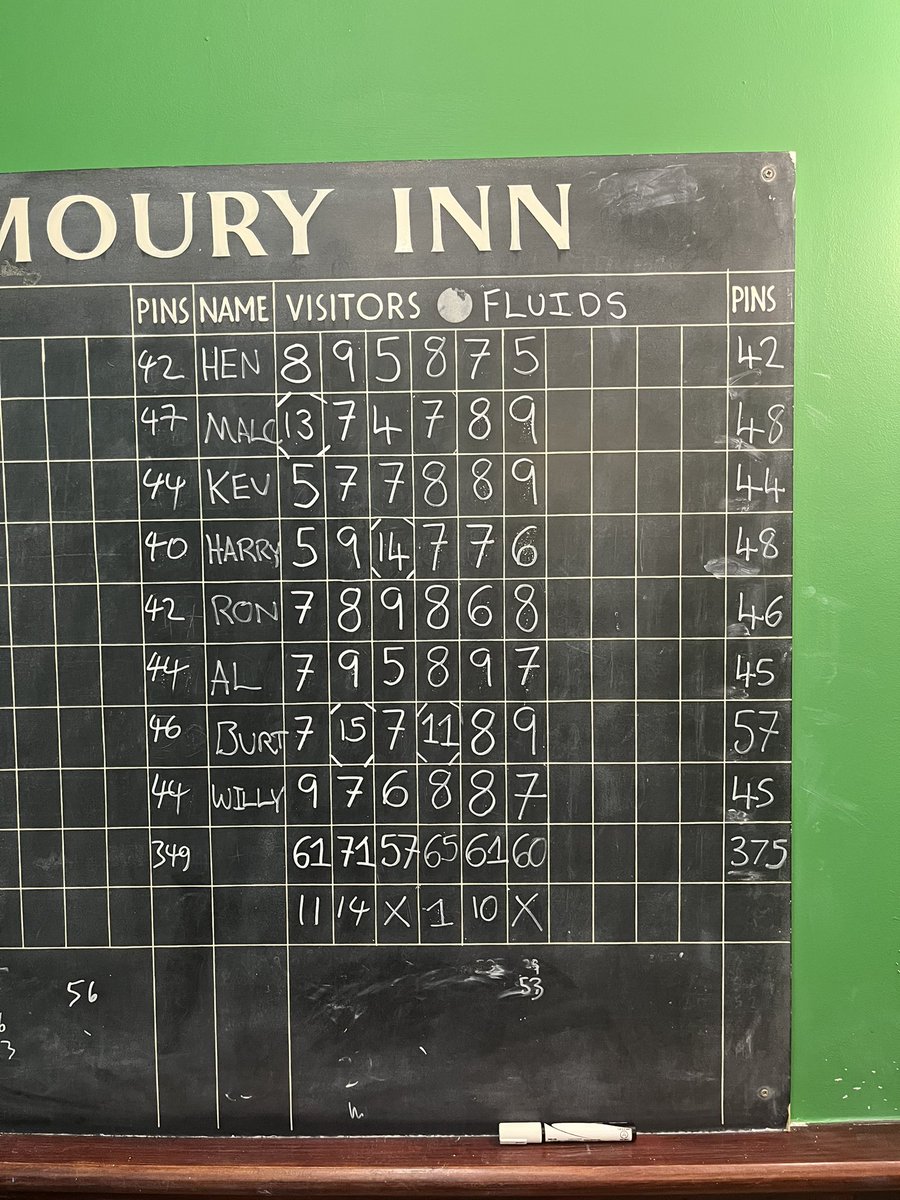 MOURY INN
PINS NAME VISITORS FLUIDS PINS
42 HEN 8 9 5 8 7 5 42
47 MALC 13 7 4 7 8 9 48
44 KEV 5 7 7 8 8 9 44
40 HARRY 5 9 14 7 7 6 48
42 RON 7 8 9 8 6 8 46
44 AL 7 9 5 8 9 7 45
46 BURT 7 15 7 11 8 9 57
44 WILLY 9 7 6 8 8 7 45
349 61 71 57 65 61 60 375
11 14 X 1 10 X
56 53